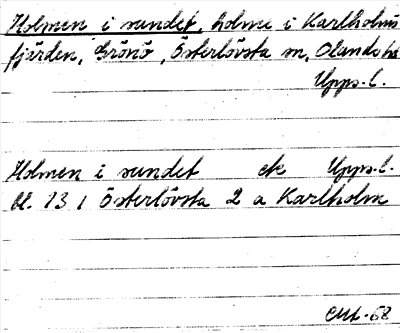 Holmen i sundet, holme i Karlholms
fjärden, Grönö, Österlövsta sn, Olands hd
Upps. l.
Holmen i sundet ek Upps. l.
bl. 13 i Österlövsta 2 a Karlholm
-68